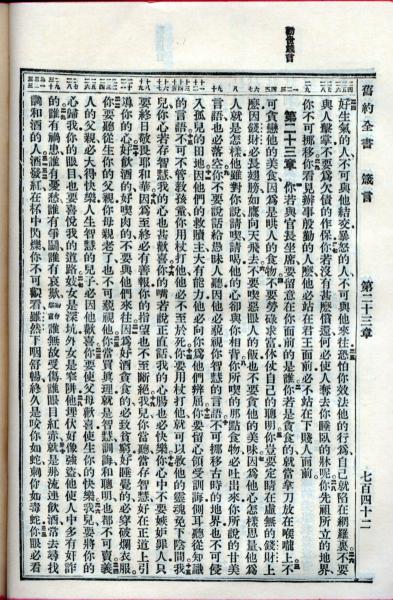 舊約全書 箴言 第二十三章 七百四十二
好生氣的人不可與他結交暴怒的人不可與他來往恐怕你效法他的行爲自己就陷在網羅裏不要
與人擊掌不要爲欠債的作保你若沒有甚麼償還何必使人奪去你睡臥的牀呢你先祖所立的地界
你不可挪移你看見辦事殷勤的人麼他必站在君王面前必不站在下賤人面前
第二十三章 你若與官長坐席要留意在你面前的是誰你若是貪食的就當拿刀放在喉嚨上不
可貪戀他的美食因爲是哄人的食物不要勞碌求富休仗自己的聰明你豈要定睛在虛無的錢財上
麼因錢財必長翅膀如鷹向天飛去不要喫惡眼人的飯也不要貪他的美味因爲他心怎樣思量他爲
人就是怎樣他雖對你說請喫請喝他的心卻與你相背你所喫的那點食物必吐出來你所說的甘美
言語也必落空你不要說話給愚昧人聽因他必藐視你智慧的言語不可挪移古時的地界也不可侵
入孤兒的田地因他們的救贖主大有能力他必向你爲他們辨屈你要留心領受訓誨側耳聽從知識
的言語不可不管教孩童你用杖打他他必不至於死你要用杖打他就可以救他的靈魂免下陰間我
兒你心若存智慧我的心也甚歡喜你的嘴若說正直話我的心腸也必快樂你心中不要嫉妒罪人只
要終日敬畏耶和華因爲至終必有善報你的指望也不至斷絕我兒你當聽當存智慧好在正道上引
導你的心好飲酒的好喫肉的不要與他們來往因爲好酒貪食的必致貧窮好睡覺的必穿破爛衣服
你要聽從生你的父親你母親老了也不可藐視他你當買眞理就是智慧訓誨和聰明也都不可賣義
人的父親必大得快樂人生智慧的兒子必因他歡喜你要使父母歡喜使生你的快樂我兒要將你的
心歸我你的眼目也要喜悅我的道路妓女是深坑外女是窄阱他埋伏好像強盜他使人中多有奸詐
的誰有禍患誰有憂愁誰有爭鬬誰有哀歎誰無故受傷誰眼目紅赤就是那流連飲酒常去尋找
調和酒的人酒發紅在杯中閃爍你不可觀看雖然下咽舒暢終久是咬你如蛇刺你如毒蛇你眼必看